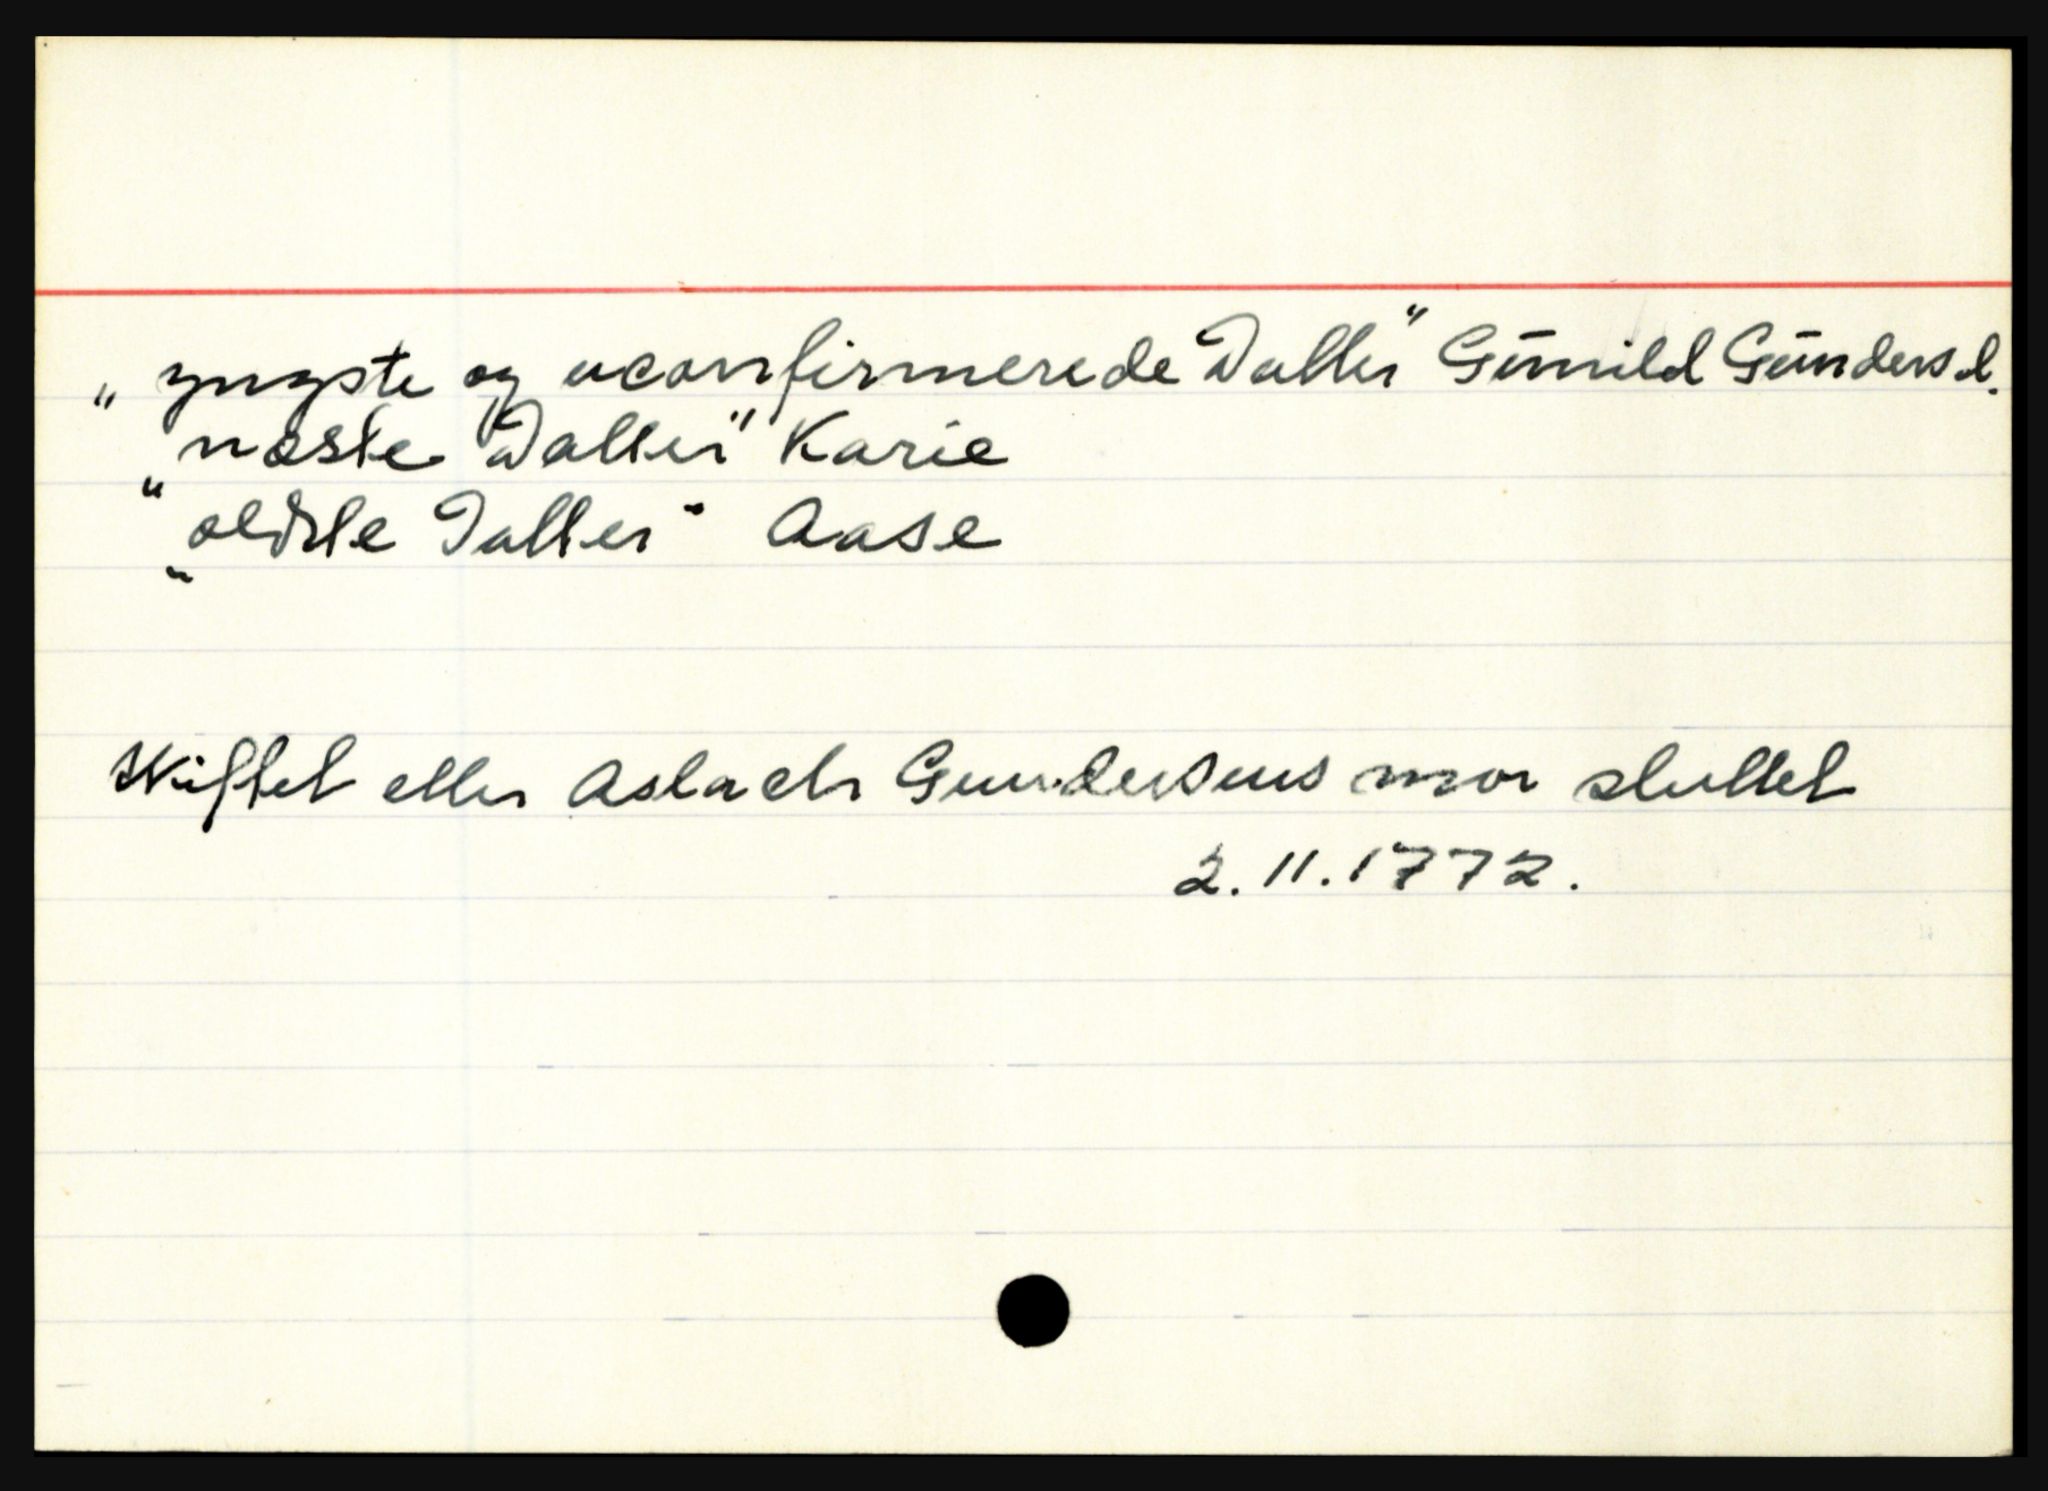 „yngste og uconfirmerede Datter" Gūnild Gūndersd.
„næste Datter" Karie
„ældste Datter" Aase
Skiftet etter Aslach Gundersens mor sluttet
2.11.1772.